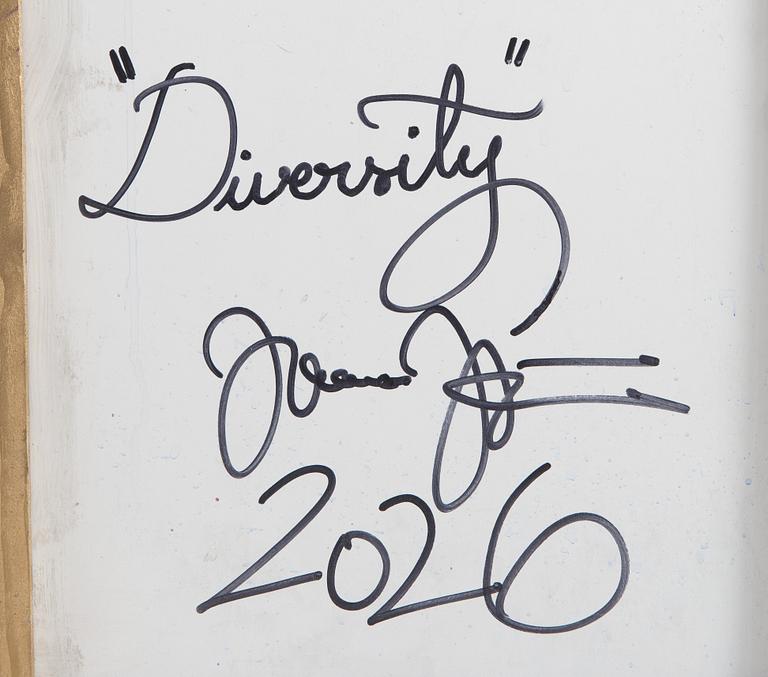 "Diversity"
2026